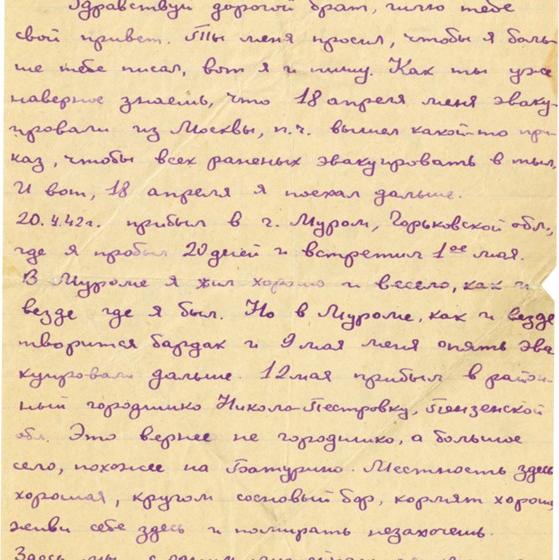 Здравствуй дорогой брат, шлю тебе
свой привет. Ты меня просил, чтобы я боль-
ше тебе писал, вот я и пишу. Как ты уже
наверное знаешь, что 18 апреля меня эваку-
ировали из Москвы, п.ч. вышел какой-то при-
каз, чтобы всех раненых эвакуировать в тыл.
И вот, 18 апреля я поехал дальше.
20.4.42г. прибыл в г. Муром, Горьковской обл.,
где я пробыл 20 дней и встретил 1ое мая.
В Муроме я жил хорошо и весело, как и
везде где я был. Но в Муроме, как и везде
творится бардак и 9 мая меня опять эва
куировали дальше. 12 мая прибыл в район-
ный городишко Николо-Пестровку, Пензенской
обл. Это вернее не городишко, а большое
село, похожее на Батурино. Местность здесь
хорошая, кругом сосновый бор, кормят хорошо
живи себе здесь и помирать незахочешь.
Здесь мы с